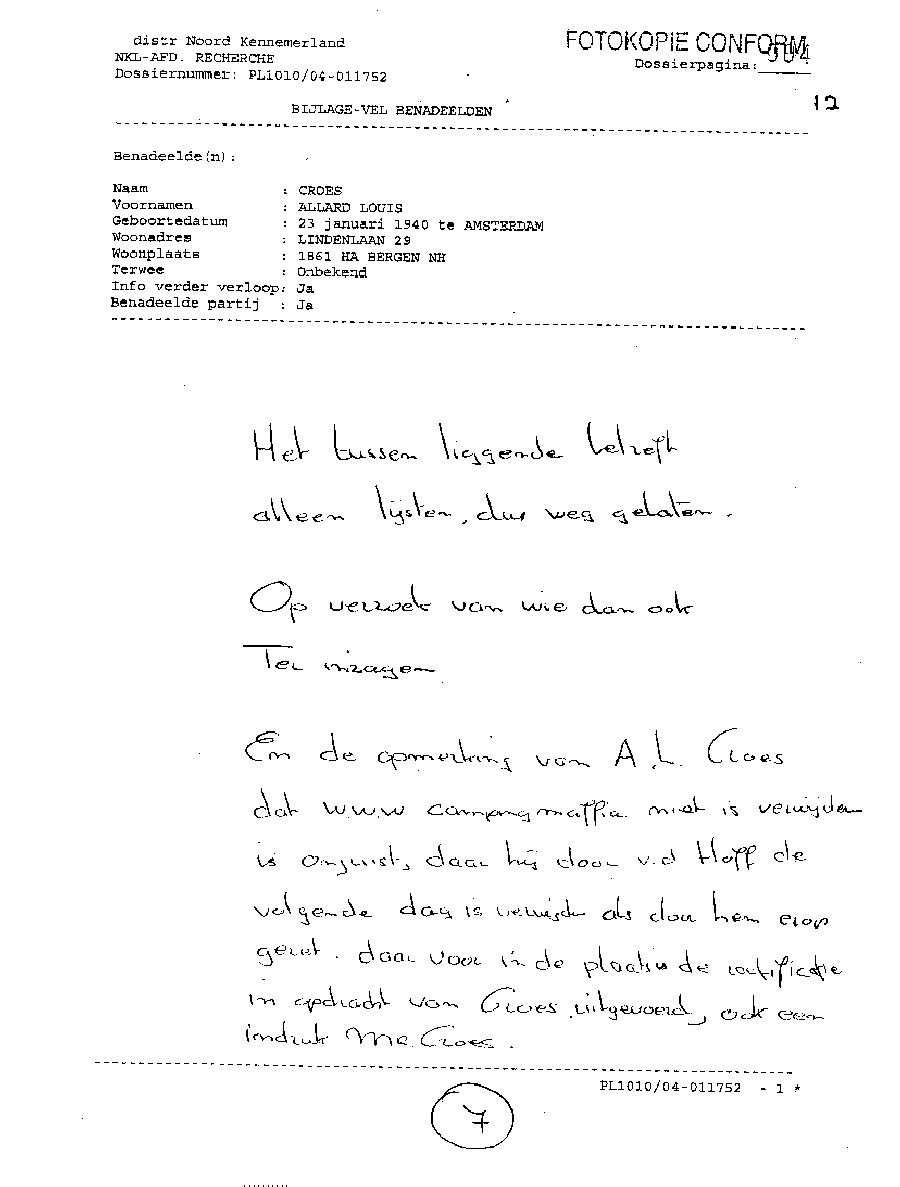 distr Noord Kennemerland
NKL-AFD. RECHERCHE
Dossiernummer: PL1010/04-011752
FOTOKOPIE CONFORM
Dossierpagina:
12
BIJLAGE-VEL BENADEELDEN
Benadeelde(n):
Naam : CROES
Voornamen : ALLARD LOUIS
Geboortedatum : 23 januari 1940 te AMSTERDAM
Woonadres : LINDENLAAN 29
Woonplaats : 1861 HA BERGEN NH
Terwee : Onbekend
Info verder verloop: Ja
Benadeelde partij : Ja
Het tussen liggende betreft
alleen lijsten, dus weg gelaten.
Op verzoek van wie dan ook
Ter inzagen
En de opmerking van A.L. Croes
dat www campingmaffia niet is verwijder
is onjuist, daar hij door v.d Hoff de
volgende dag is verwijst als door hem erop
gezet. daar voor in de plaats de rectificatie
in opdracht van Croes uitgevoerd, ook een
indruk Mr. Croes.
PL1010/04-011752 - 1 *
7